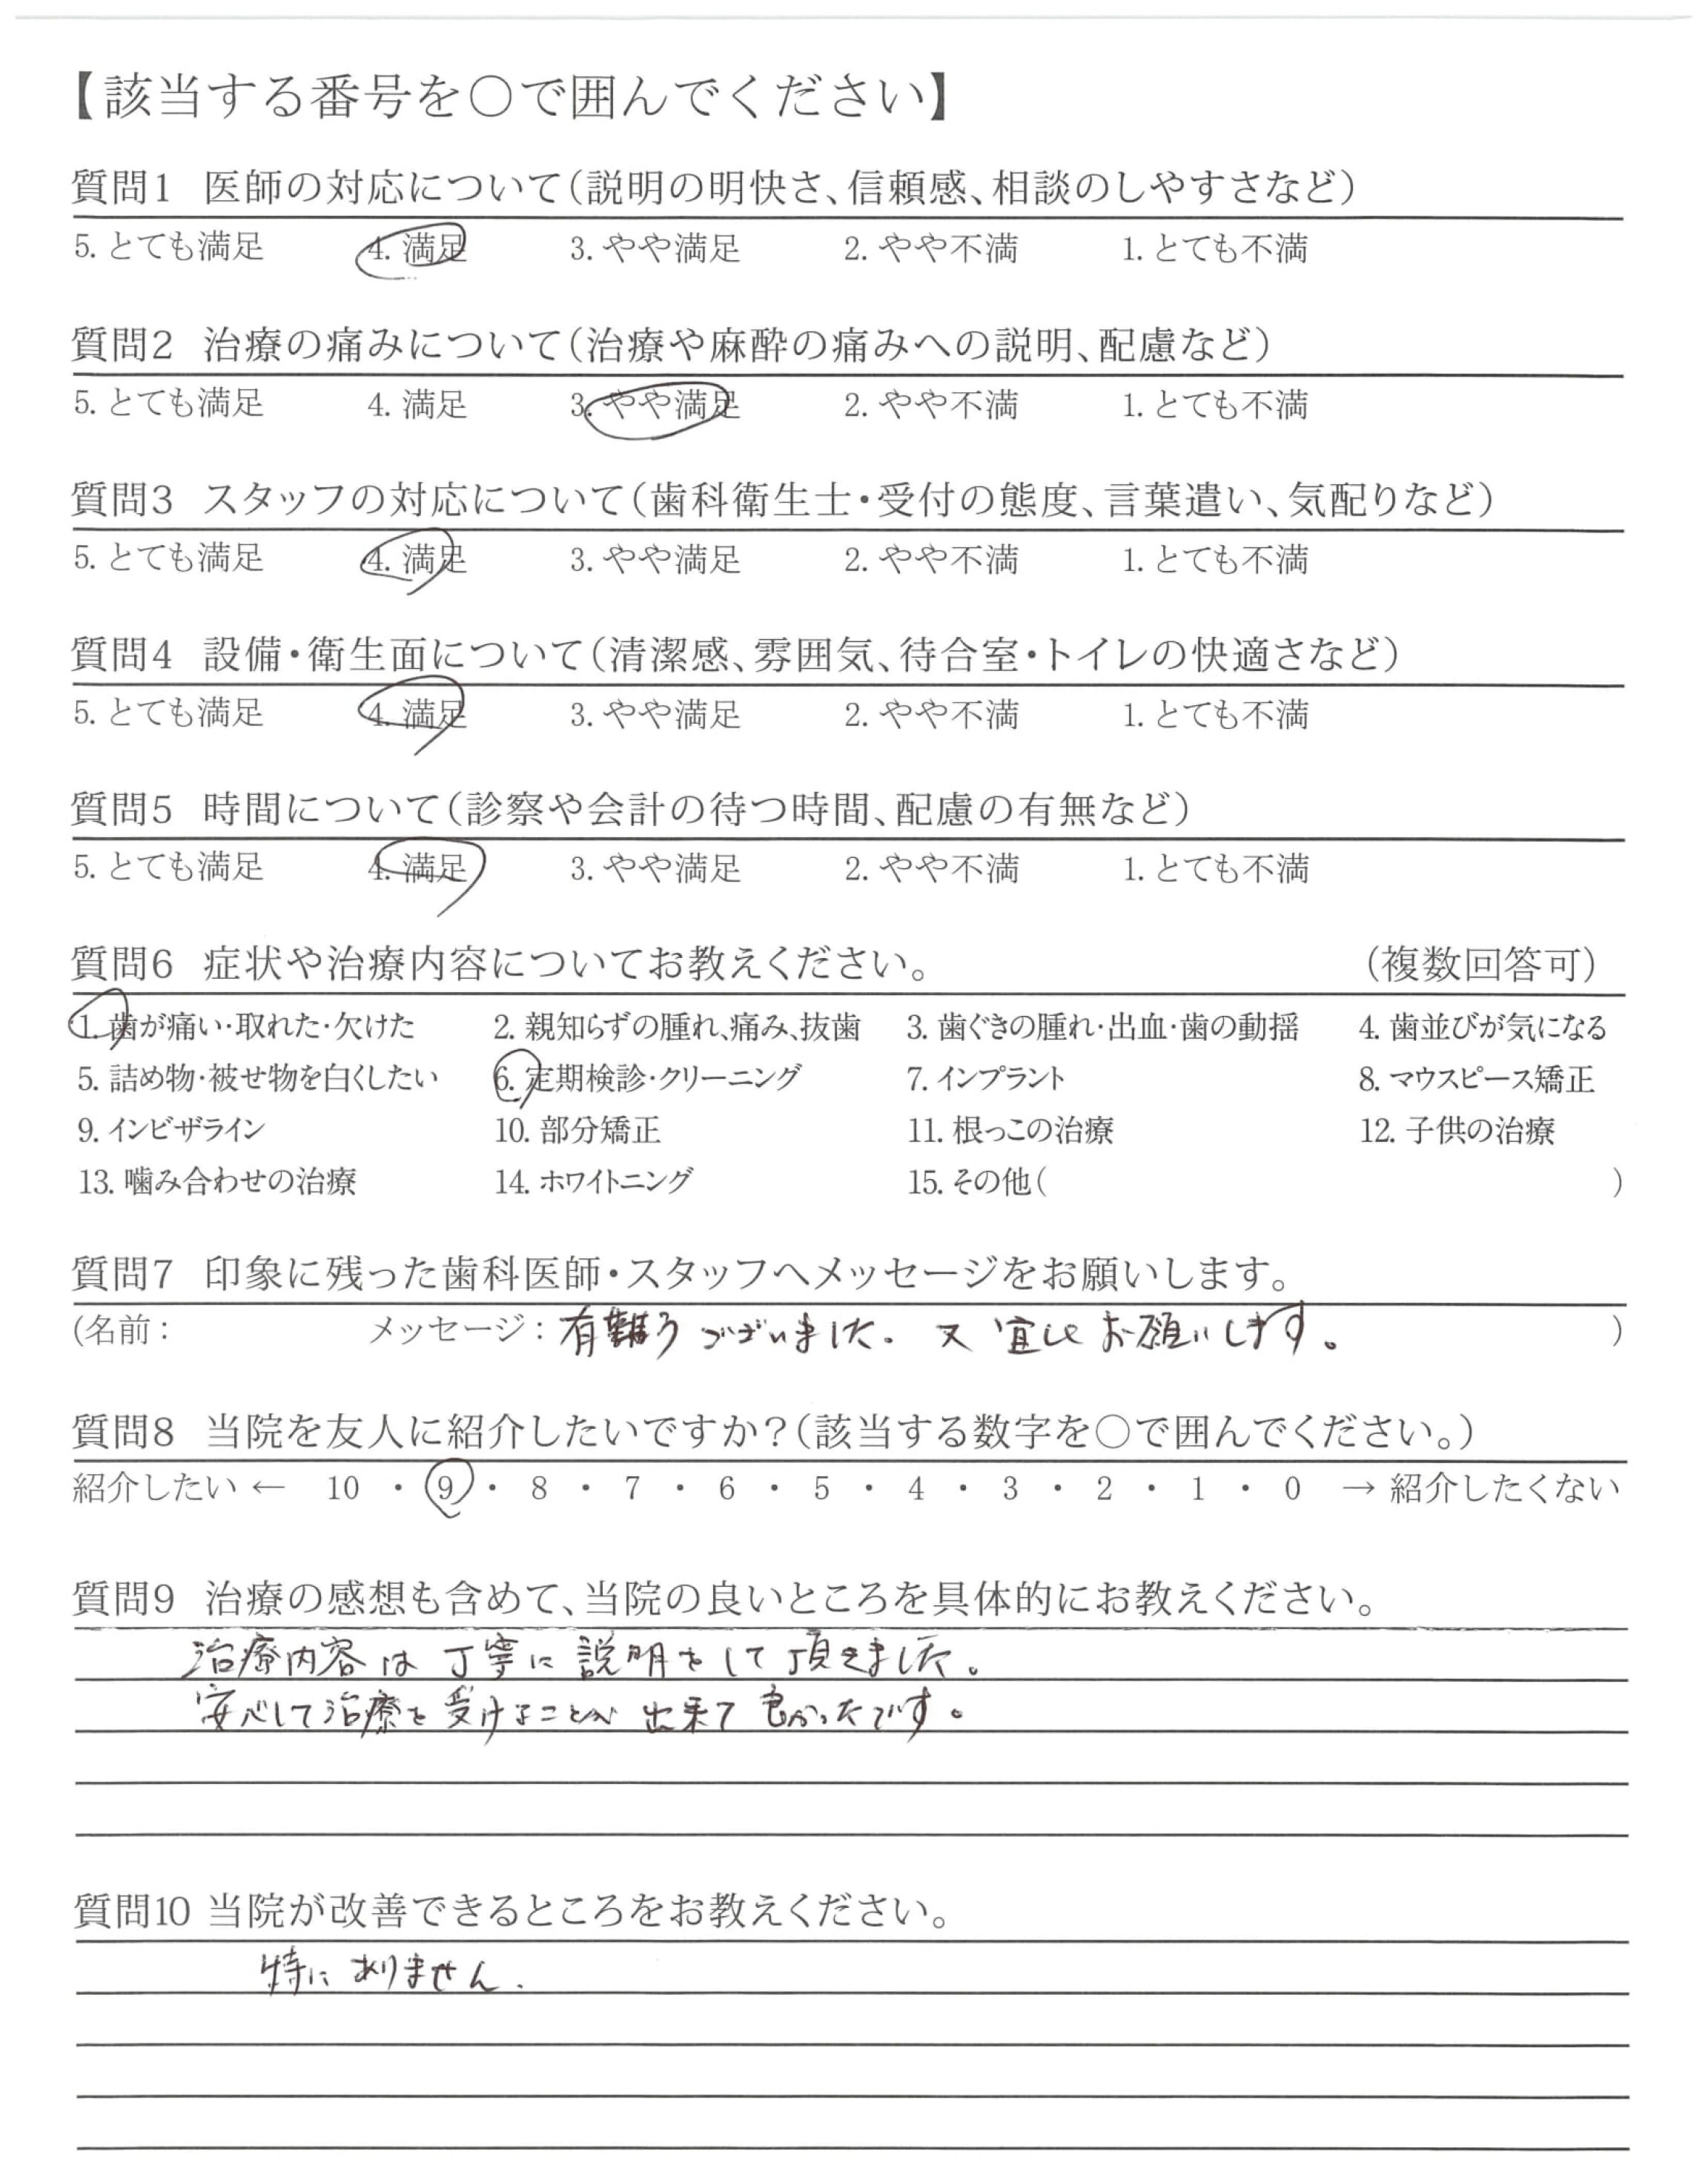 【該当する番号を○で囲んでください】
質問1 医師の対応について(説明の明快さ、信頼感、相談のしやすさなど)
5. とても満足 4. 満足 3. やや満足 2. やや不満 1. とても不満
質問2 治療の痛みについて(治療や麻酔の痛みへの説明、配慮など)
5. とても満足 4. 満足 3. やや満足 2. やや不満 1. とても不満
質問3 スタッフの対応について(歯科衛生士・受付の態度、言葉遣い、気配りなど)
5. とても満足 4. 満足 3. やや満足 2. やや不満 1. とても不満
質問4 設備・衛生面について(清潔感、雰囲気、待合室・トイレの快適さなど)
5. とても満足 4. 満足 3. やや満足 2. やや不満 1. とても不満
質問5 時間について(診察や会計の待つ時間、配慮の有無など)
5. とても満足 4. 満足 3. やや満足 2. やや不満 1. とても不満
質問6 症状や治療内容についてお教えください。 (複数回答可)
1. 歯が痛い・取れた・欠けた 2. 親知らずの腫れ、痛み、抜歯 3. 歯ぐきの腫れ・出血・歯の動揺 4. 歯並びが気になる
5. 詰め物・被せ物を白くしたい 6. 定期検診・クリーニング 7. インプラント 8. マウスピース矯正
9. インビザライン 10. 部分矯正 11. 根っこの治療 12. 子供の治療
13. 噛み合わせの治療 14. ホワイトニング 15. その他( )
質問7 印象に残った歯科医師・スタッフへメッセージをお願いします。
(名前: メッセージ: 有難うございました. 又 宜しく お願いします。 )
質問8 当院を友人に紹介したいですか?(該当する数字を○で囲んでください。)
紹介したい ← 10 ・ 9 ・ 8 ・ 7 ・ 6 ・ 5 ・ 4 ・ 3 ・ 2 ・ 1 ・ 0 → 紹介したくない
質問9 治療の感想も含めて、当院の良いところを具体的にお教えください。
治療内容は 丁寧に 説明をして 頂きました。
安心して治療を 受けることが 出来て 良かったです。
質問10 当院が改善できるところをお教えください。
特に ありません.